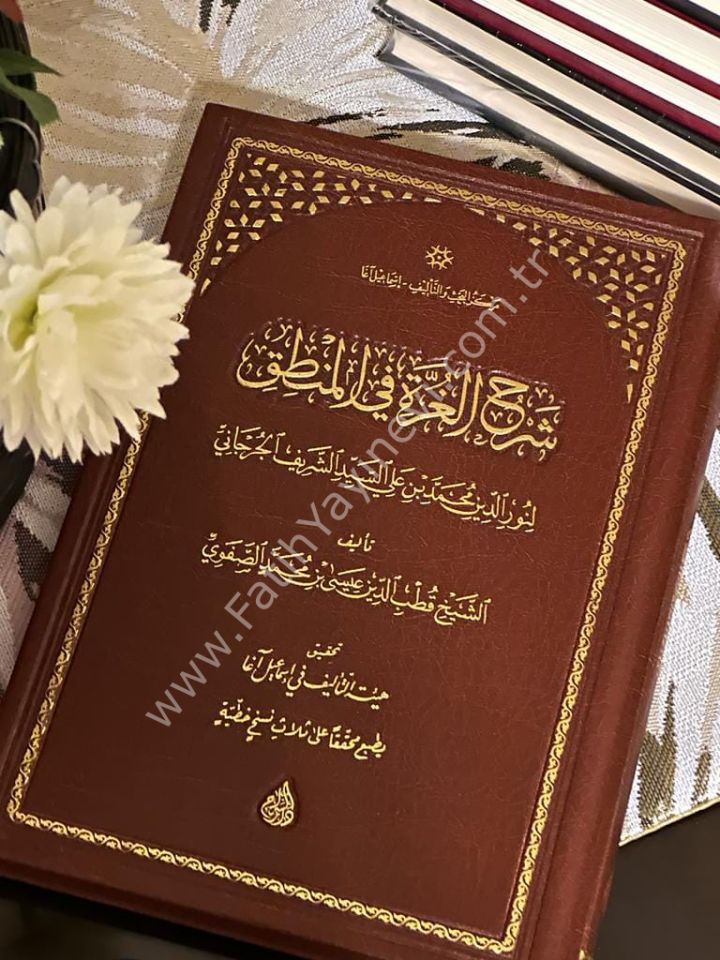 مركز البحث والتأليف - إسماعيل آغا
شَرْحُ الغُرَّةِ فِي المَنْطِقِ
لِنُورِ الدِّينِ مُحَمَّدِ بْنِ عَلِيٍّ السَّيِّدِ الشَّرِيفِ الجُرْجَانِيِّ
تأليف
الشَّيْخِ قُطْبِ الدِّينِ عِيسَى بْنِ مُحَمَّدٍ الصَّفَوِيِّ
تحقيق
هيئة التأليف في إسماعيل آغا
يطبع محققًا على ثلاث نسخ خطّيّة
www.FatihYayinevi.com.tr